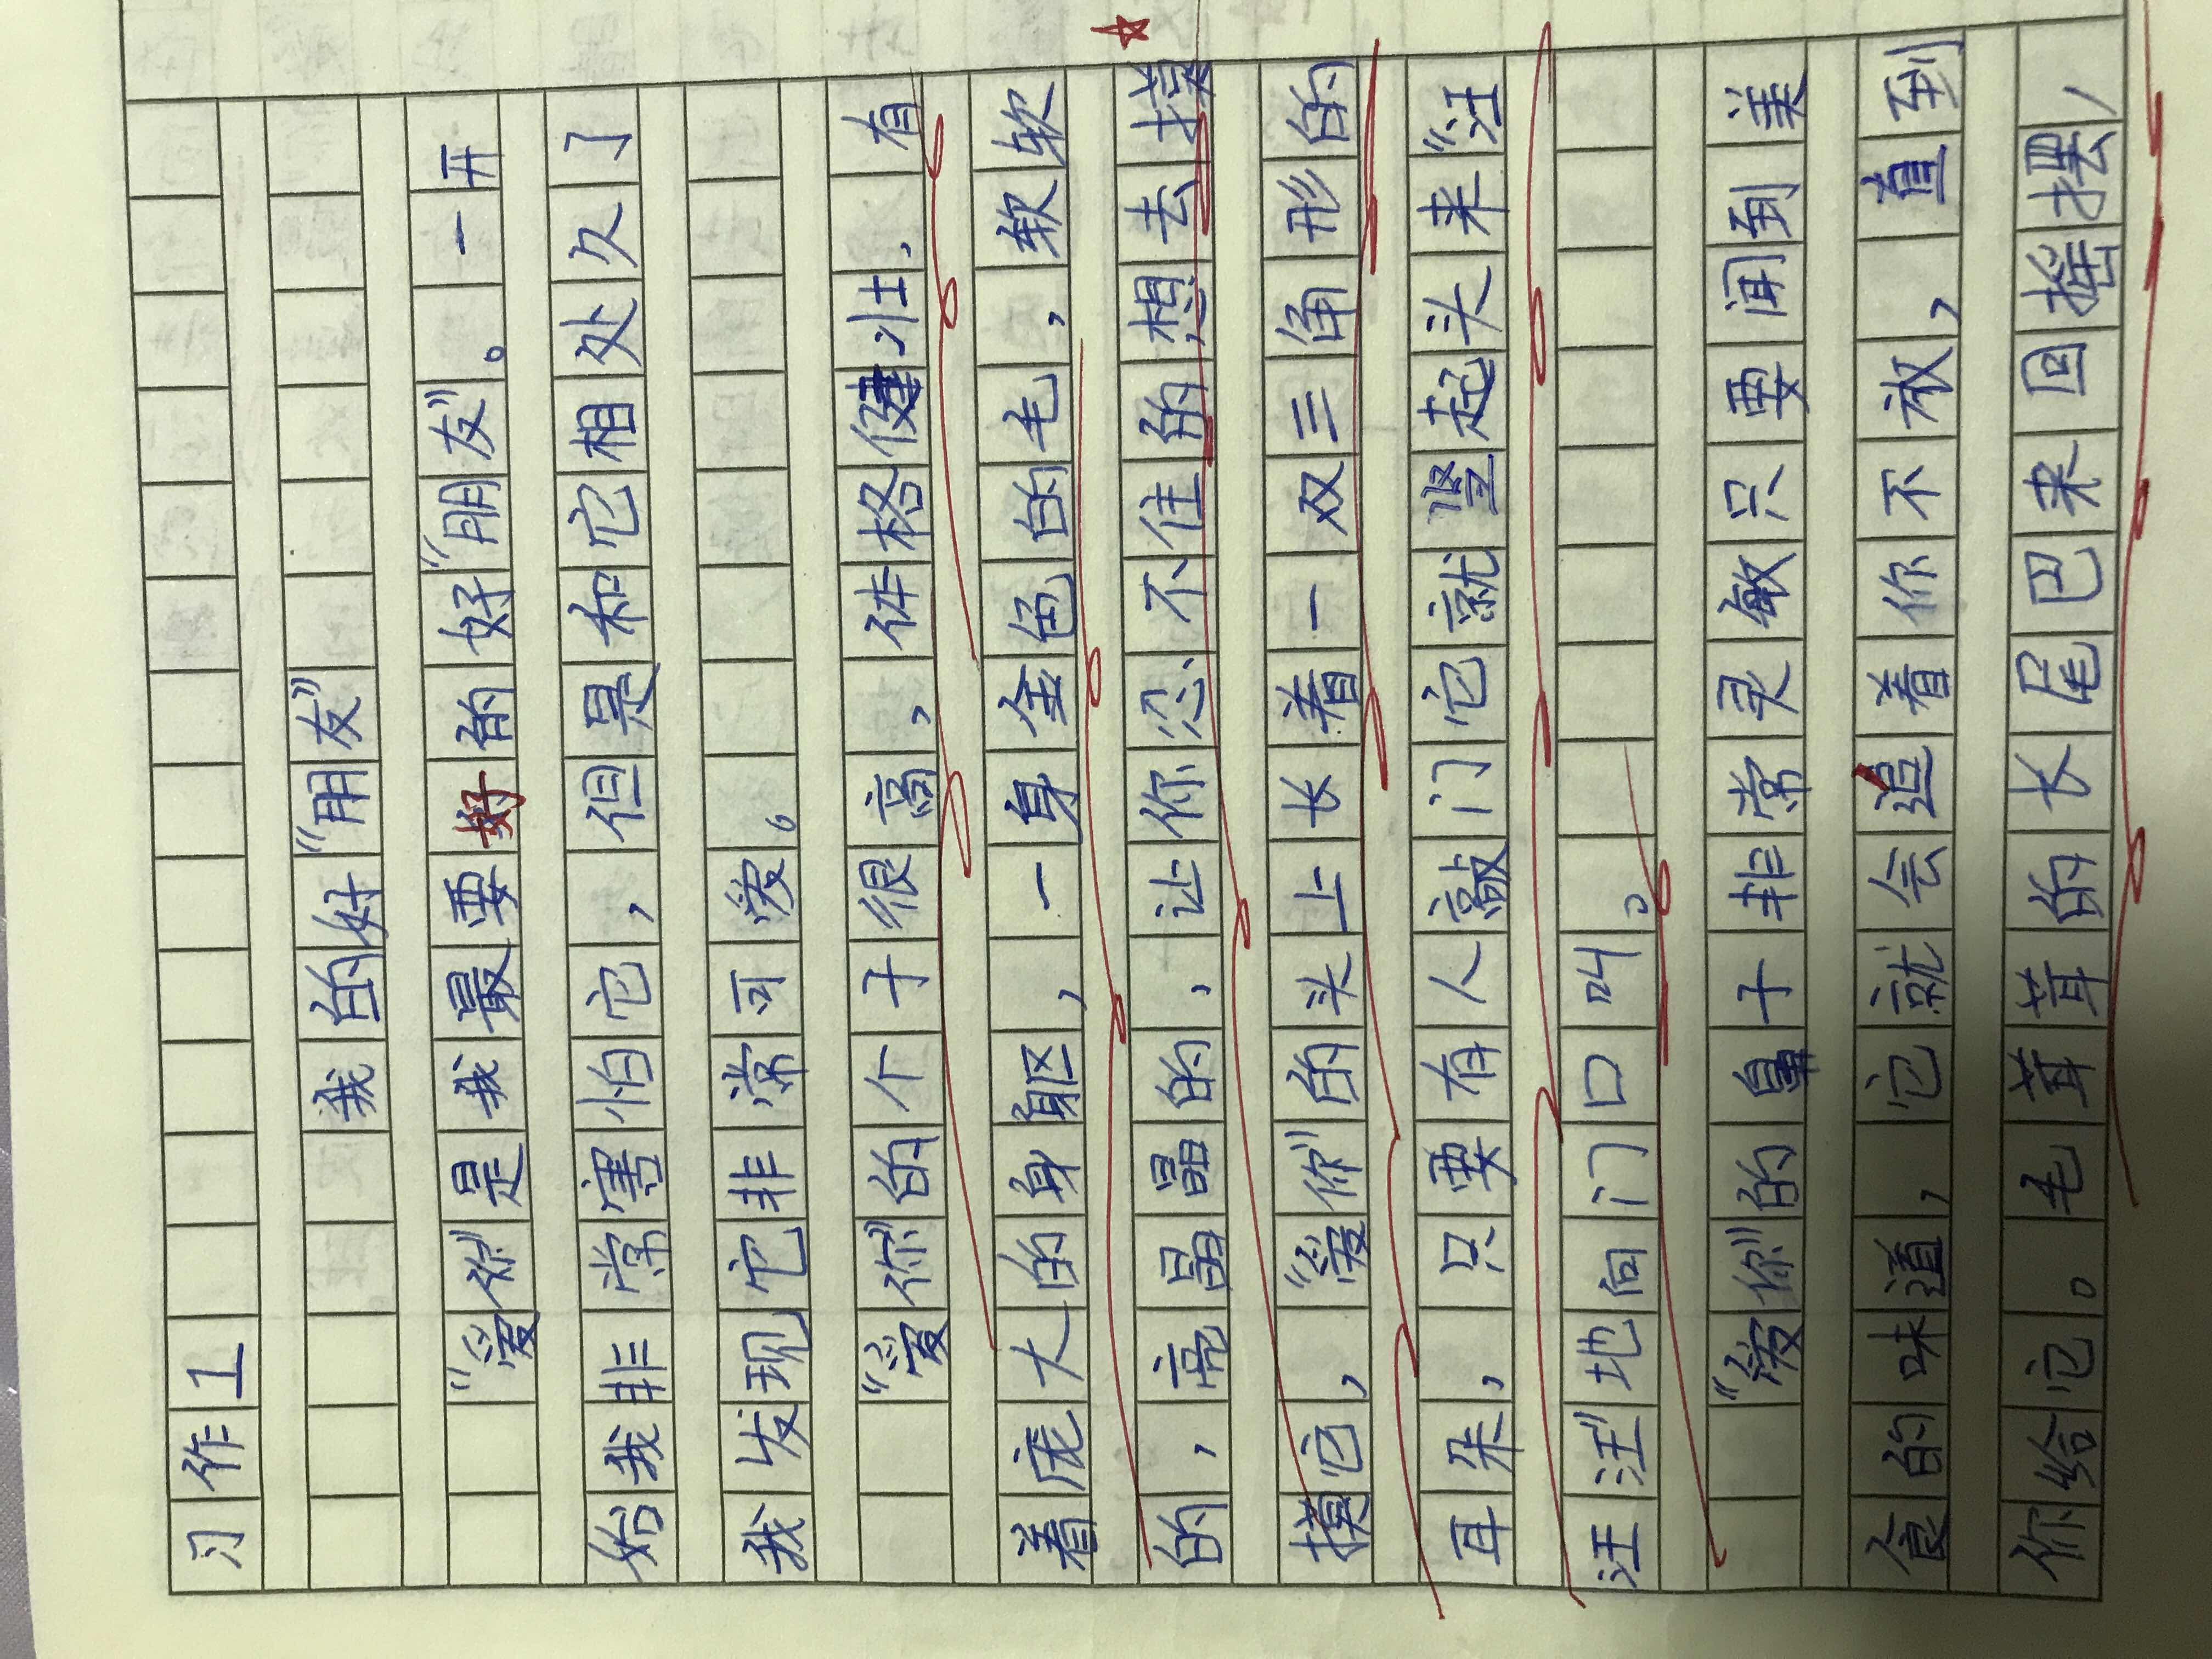 习作1
我的好“朋友”
“爱你”是我最要好的好“朋友”。一开
始我非常害怕它，但是和它相处久了
我发现它非常可爱。
“爱你”的个子很高，体格健壮，有
着庞大的身躯，一身金色的毛，软软
的，亮晶晶的，让你忍不住的想去摸
摸它，“爱你”的头上长着一双三角形的
耳朵，只要有人敲门它就竖起头来“汪
汪汪”地向门口叫。
“爱你”的鼻子非常灵敏只要闻到美
食的味道，它就会追着你不放，直到
你给它。毛茸茸的长尾巴来回摇摆，